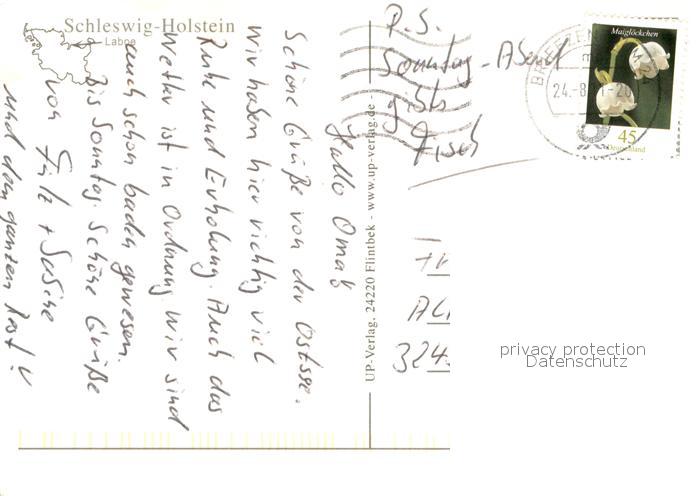 Schleswig-Holstein
Laboe
Hallo Omaß
Schöne Grüße von der Ostsse.
Wir haben hier richtig viel
Ruhe und Erholung. Auch das
Wetter ist in Ordnung wir sind
auch schon baden gewesen.
Bis Sonntag. Schöne Grüße
von
und dem ganzen Rest!
UP-Verlag, 24220 Flintbek - www.up-verlag.de -
P.S.
Sonntag-Abend
gibts
Fisch
324
Maiglöckchen
45
Deutschland
24.-8.
privacy protection
Datenschutz